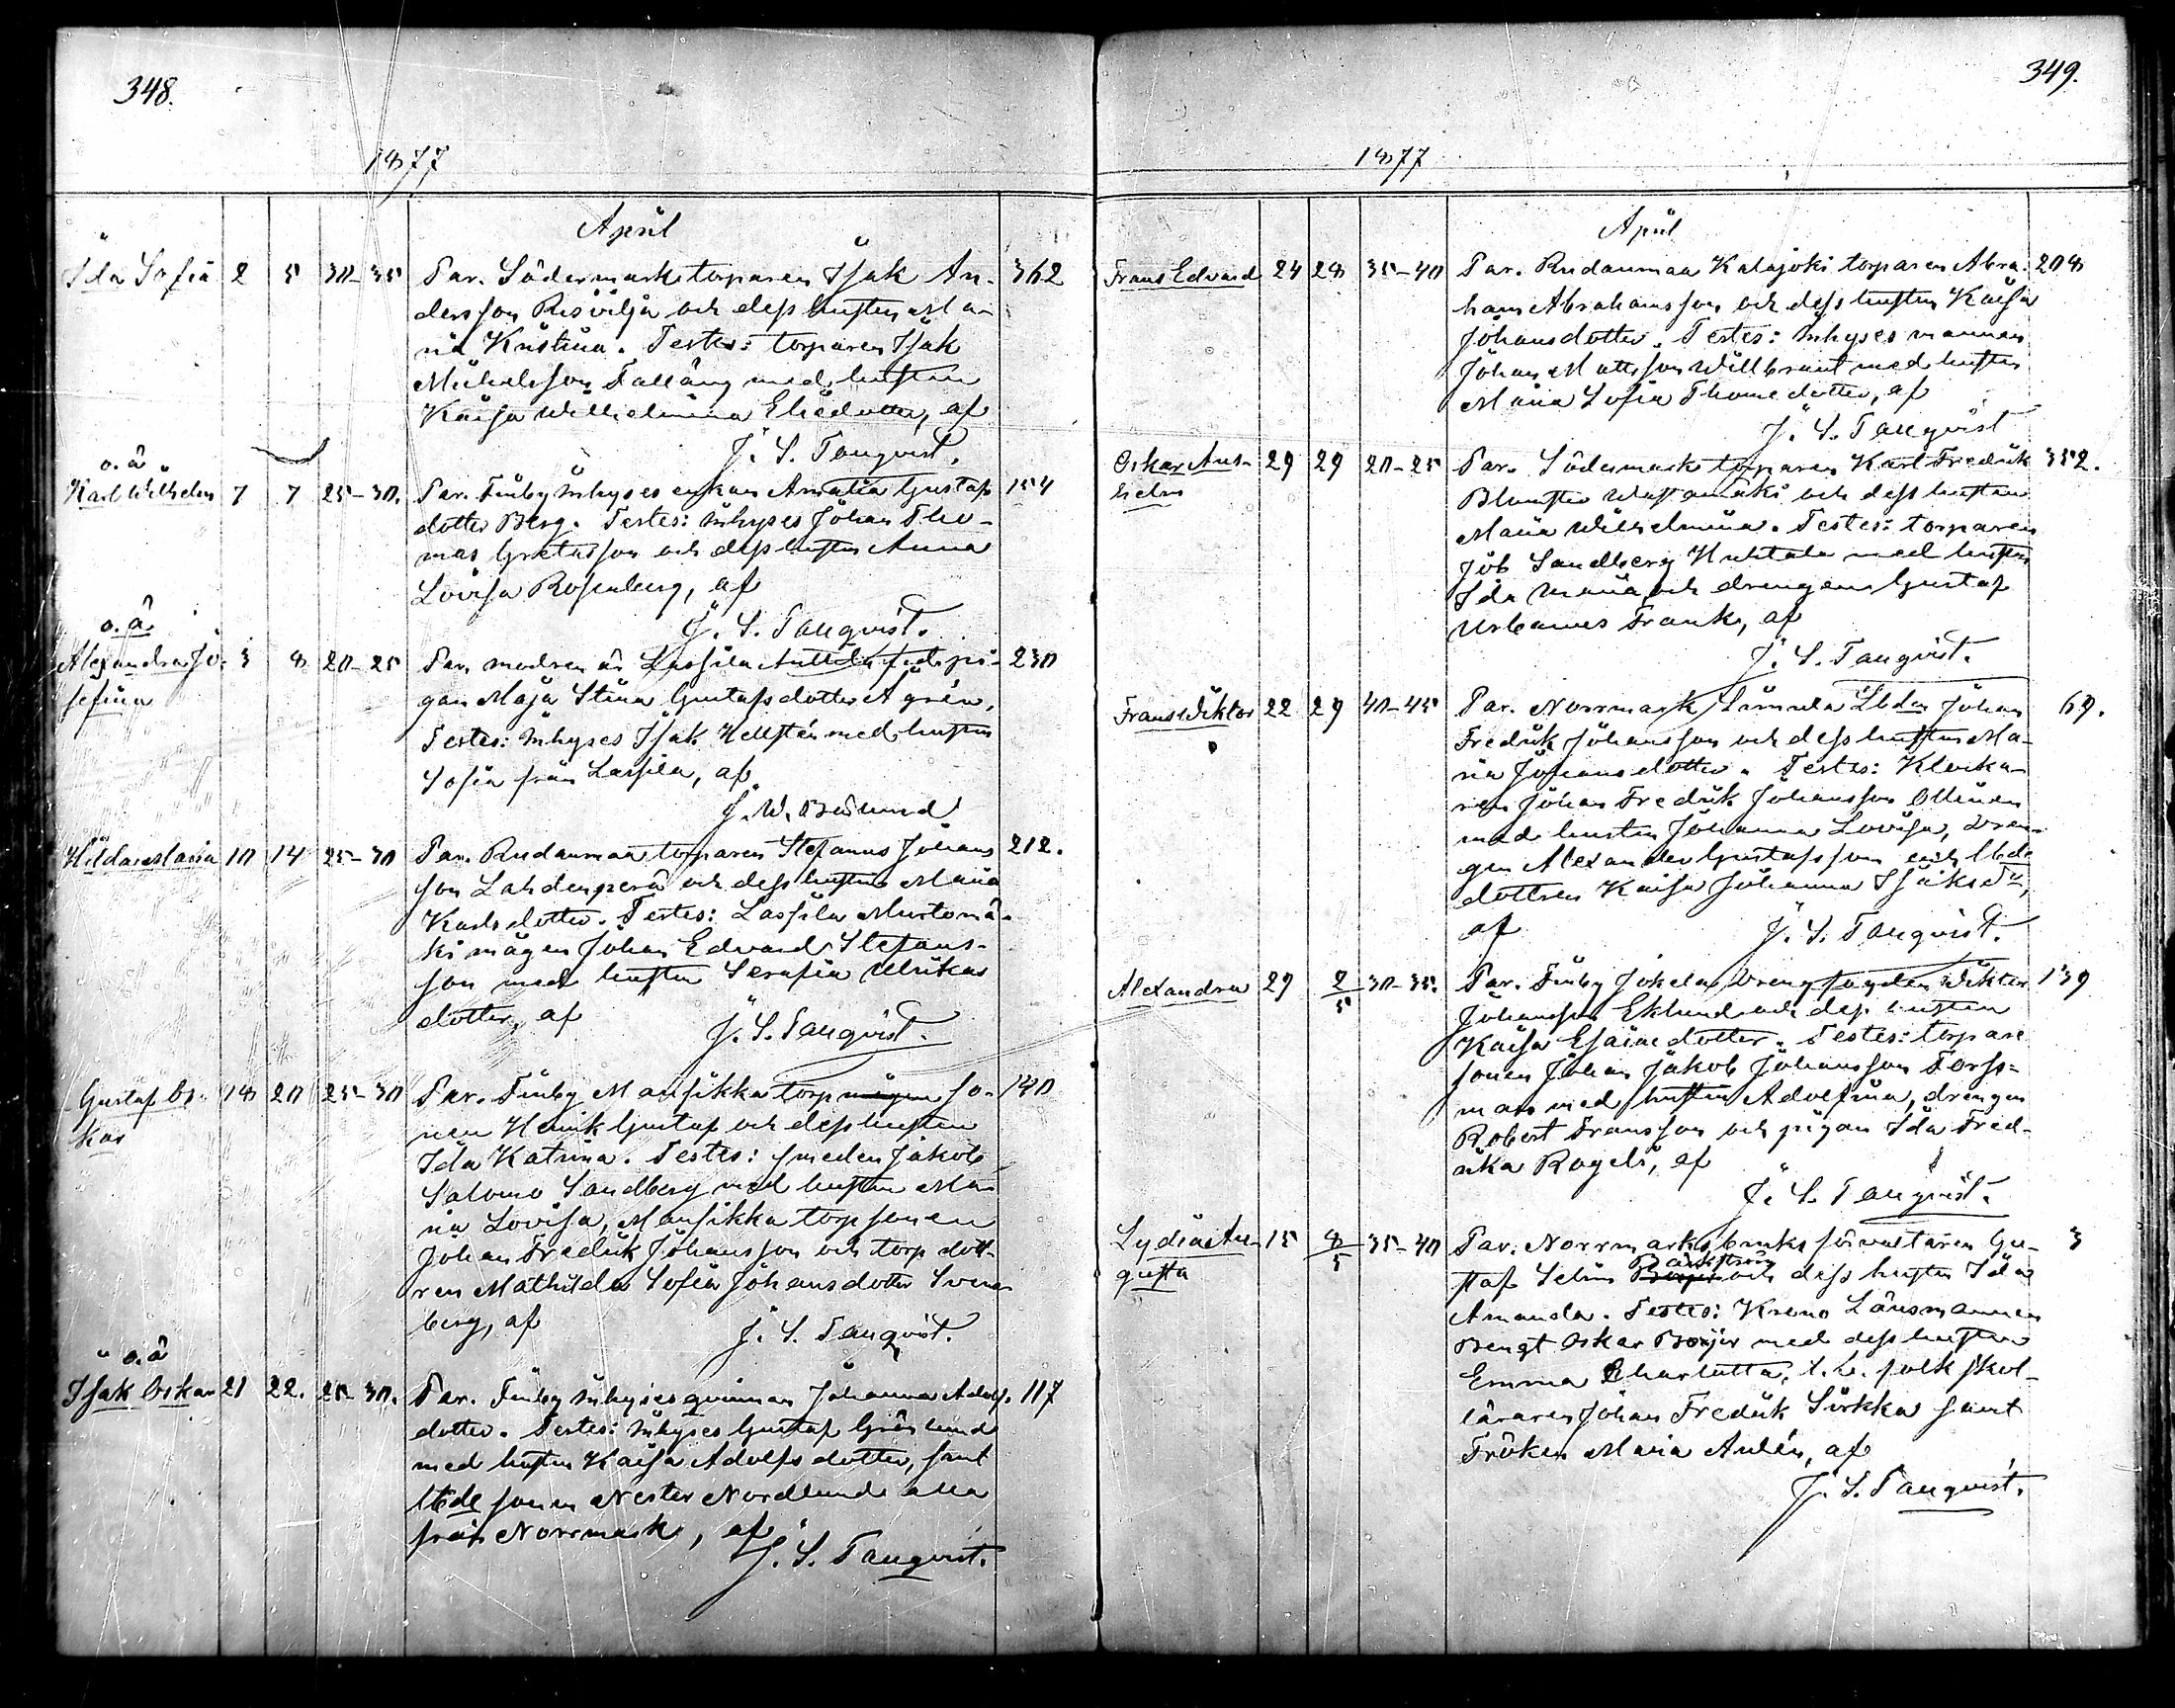 348.
1877
April
Ida Sofia 2 5 30-35 Par. Södermark torparen Isak An- 362
dersson Risvilja och dess hustru Ma-
ria Kristina. Testes: torparen Isak
Michelsson Talläng med hustrun
Kaisa Wilhelmina Eliedotter, af
J. S. Tanqvist.
o. ä
Karl Wilhelm 7 7 25-30. Par. Finby Inhyses enkan Amalia Gustafs 154
dotter Berg. Testes: Inhyses Johan Tho-
mas Gretasson och dess hustru Anna
Lovisa Rosenberg, af
J. S. Tanqvist.
o. ä.
Alexandra Jo- 3 8 20-25 Par. modren är Lassila Anttila pi- 230
sefina gan Maja Stina Gustafsdotter Agrén,
Testes: Inhyses Isak Hellstén med hustrun
Sofia från Lassila, af
J. W.
Hilda Maria 10 14 25-30 Par. Rudanmaa torparen Stefanus Johans 212.
son Lahdenperä och dess hustru Maria
Karlsdotter. Testes: Lassila Mustomä-
ki mågen Johan Edvard Stefans-
son med hustru Serafia Ulrikas
dotter, af
J. S. Tanqvist.
Gustaf Os- 18 20 25-30 Par. Finby Mansikka torp mågen so- 140
kar nen Henrik Gustaf och dess hustru
Ida Katrina. Testes: smeden Jakob
Salomo Sandberg med hustru Ma-
ria Lovisa, Mansikka torpsonen
Johan Fredrik Johansson och torp dott-
ren Mathilda Sofia Johansdotter Sven-
berg, af
J. S. Tanqvist.
o. ä
Isak Oskar 21 22. 25-30. Par. Finby Inhyses qvinnan Johanna Adolfs 117
dotter. Testes: Inhyses Gustaf Grönlund
med hustru Kaisa Adolfsdotter, samt
Lbde sonen Nestor Nordlund alla
från Norrmark, af
J. S. Tanqvist.
349.
1877
April
Frans Edvard 24 28 35-40 Par. Rudanmaa Kalajoki torparen Abra- 208
ham Abrahamsson och dess hustru Kaisa
Johansdotter. Testes: Inhyses mannen
Johan Mattsson Willbrant med hustru
Maria Sofia Thomedotter, af
J. S. Tanqvist
Oskar Ans- 29 29 20-25 Par. Södermark torparen Karl Fredrik 352.
helm och dess hustru
Maria Wilhelmina. Testes: torparen
Job Sandberg Huhtala med hustru
Ida Maria och drengen Gustaf
Urbanus Frank, af
J. S. Tanqvist.
Frans Viktor 22 29 40-45 Par. Norrmark Lbden Johan 69.
Fredrik Johansson och dess hustru Ma-
ria Johansdotter. Testes: Klocka-
ren Johan Fredrik Johansson Ollinen
med hustru Johanna Lovisa, dren-
gen Alexander Gustafsson och Lbde
dottren Kaisa Johanna Isaksdr,
af
J. S. Tanqvist.
Alexandra 29 2/5 30-35. Par. Finby Jokela Drengfogden Viktor 139
Johansson Eklund och dess hustru
Kaisa Esaiaedotter. Testes: torpare
sonen Johan Jakob Johansson Forss-
man med hustru Adolfina, drengen
Robert Fransson och pigan Ida Fred-
rika Rogel, af
J. S. Tanqvist.
Lydia Au- 15 8/5 35-40 Par. Norrmarks bruks förvaltaren Gu- 3
gusta staf Selim Backström och dess hustru Ida
Amanda. Testes: Krono Länsmannen
Bengt Oskar Boijer med dess hustru
Emma Charlotta, t. v. folkskol-
läraren Johan Fredrik Sirkka samt
Fröken Maria Aulén, af
J. S. Tanqvist.